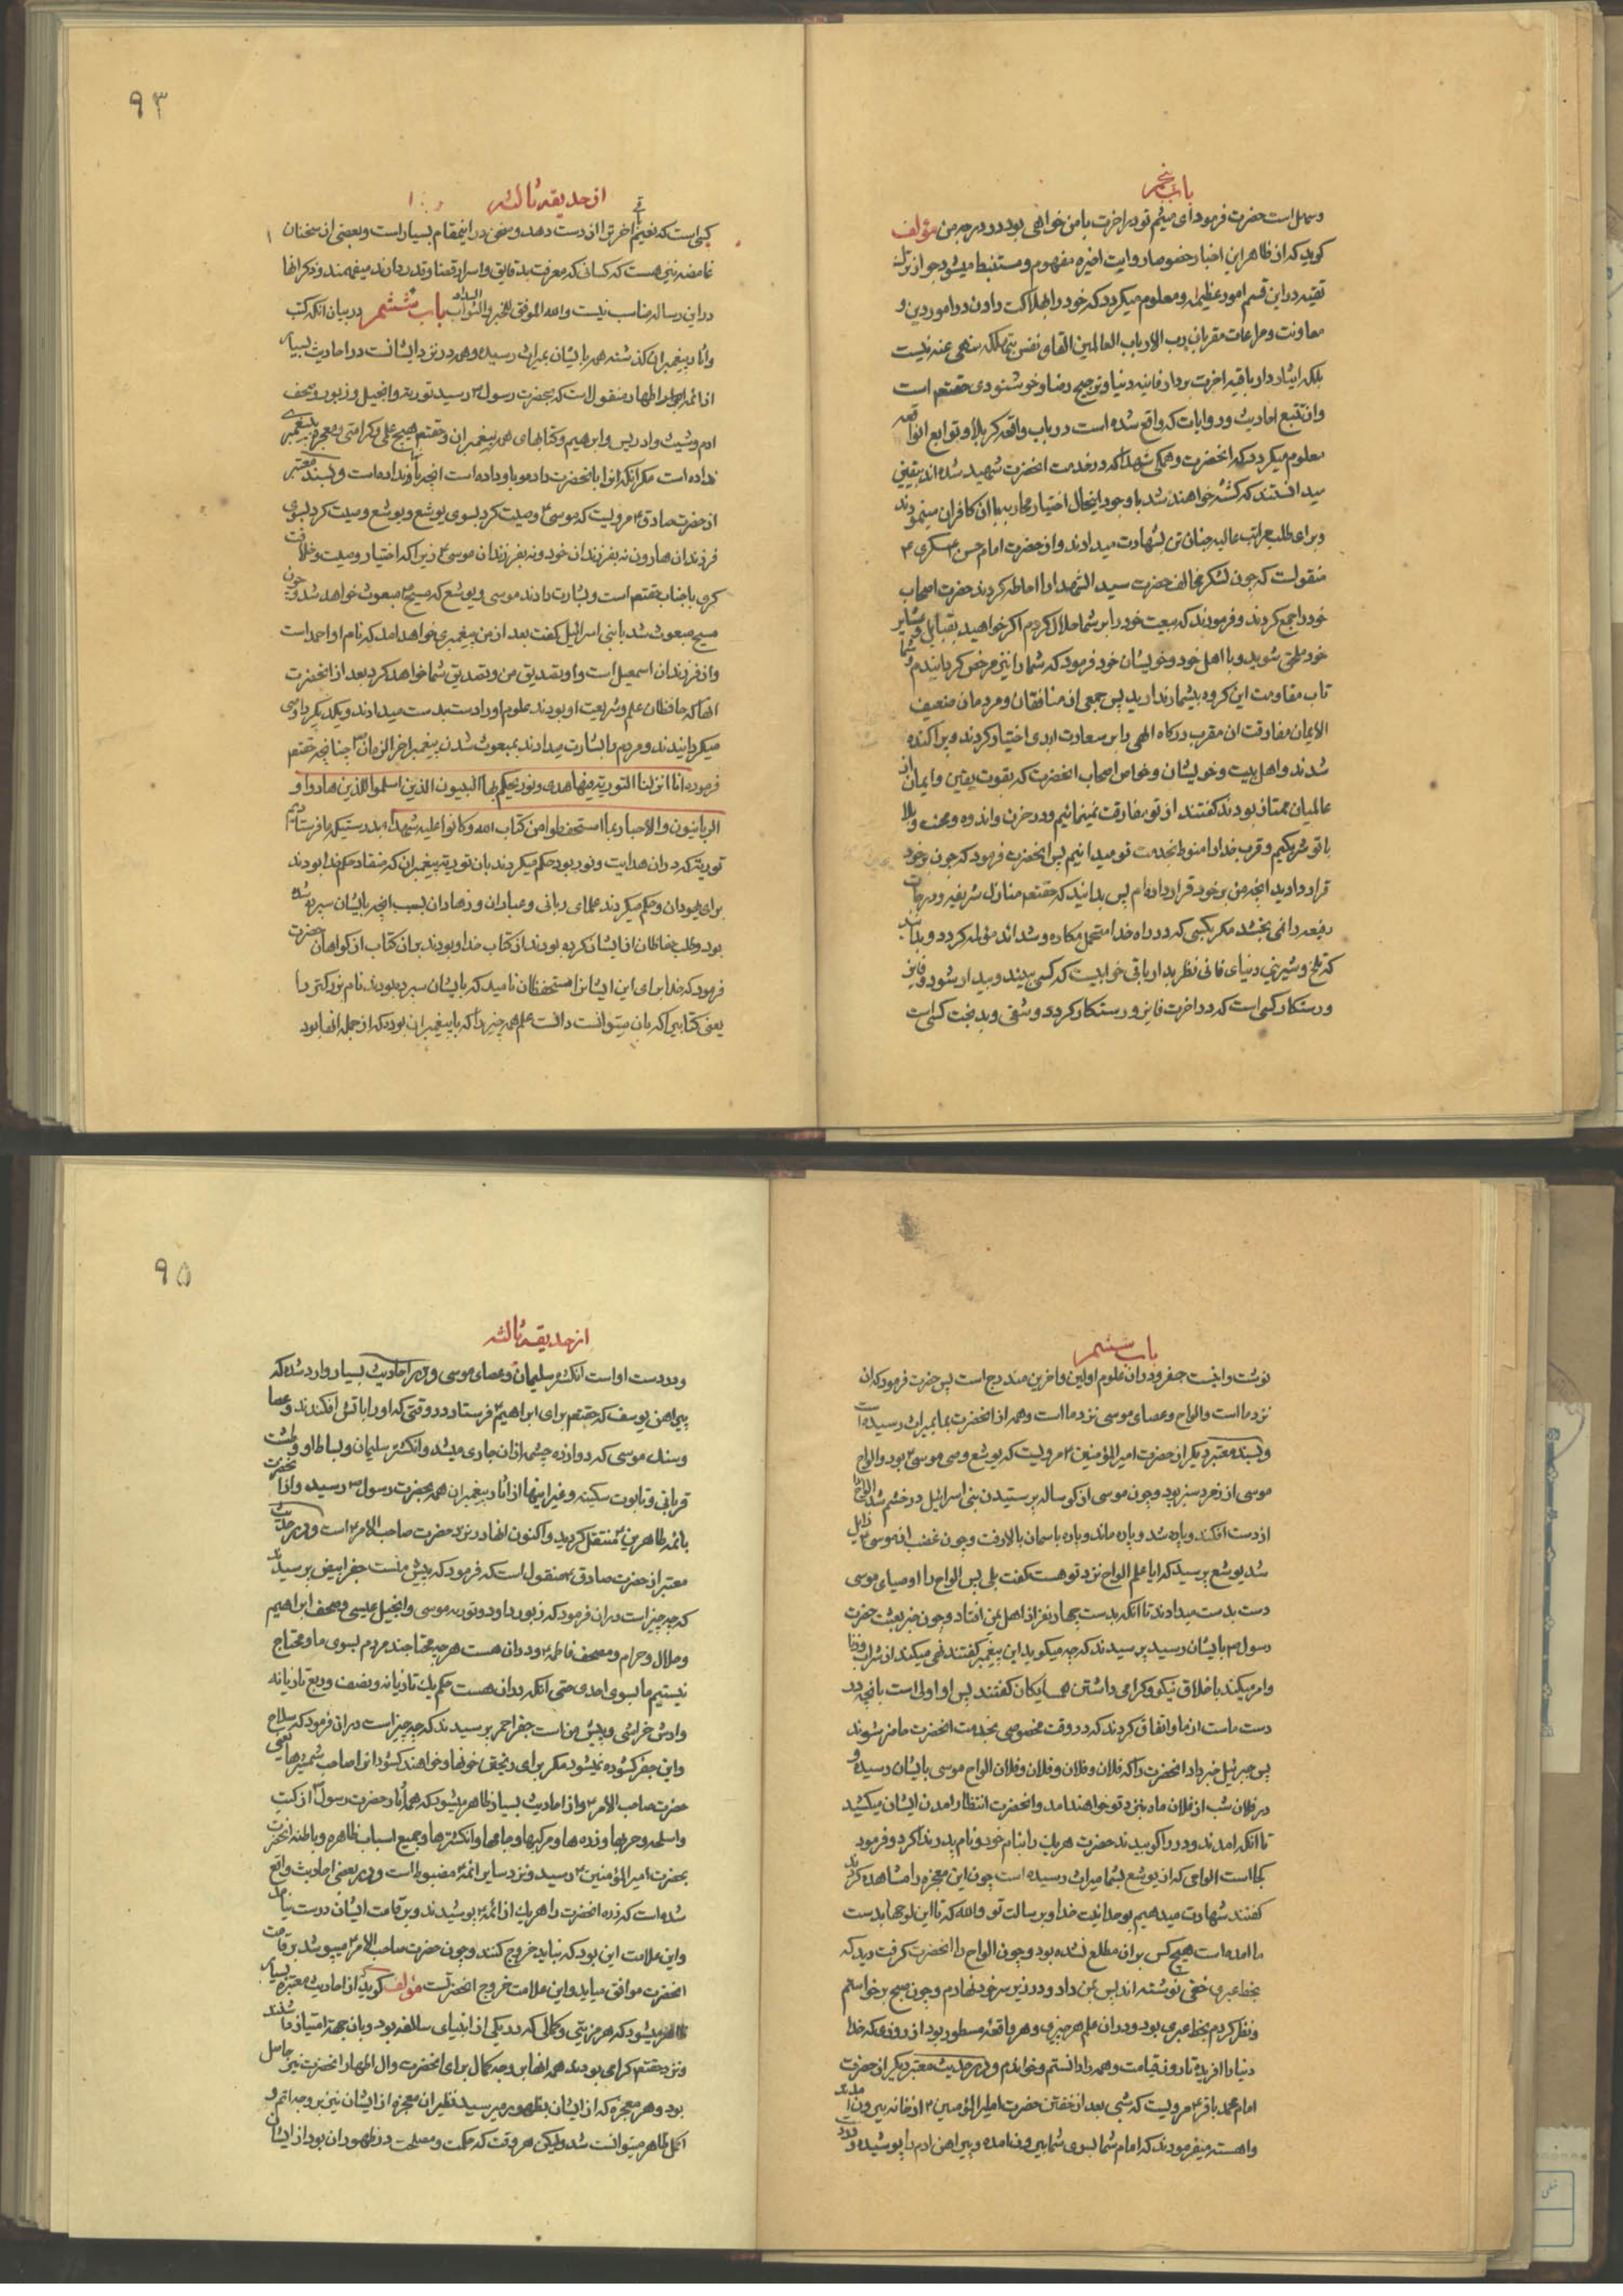 باب پنجم
وسهل است حضرت فرمود ای میثم تو در اخرت با من خواهی بود در درجه من مؤلف
کوید که از ظاهر این اخبار خصوصا روایت اخیره مفهوم و مستنبط میشود جواز ترک
تقیه در این قسم امور عظیمه و معلوم میکردد که خود را بهلاکت دادن در امور دین و
معاونت و مراعات مقربان رب الارباب العالمین القاء نفس بتهلکه منهی عنه نیست
بلکه ایثار دار باقیه اخرت بر دار فانیه دنیا و ترجیح رضا و خوشنودی حقتعم است
واز تتبع احادیث و روایات که واقع شده است در باب واقعه کربلا و توابع انواقعه
معلوم میکردد که انحضرت و همکی شهدا که در خدمت انحضرت شهید شده اند بیقین
میدانستند که کشته خواهند شد با وجود اینحال اختیار محاربه با ان کافران مینمودند
وبرای طلب مراتب عالیه جنان تن بشهادت میدادند و از حضرت امام حسن عسکری ع
منقولست که چون لشکر مخالف حضرت سید الشهدا را احاطه کردند حضرت اصحاب
خود را جمع کردند و فرمودند که بیعت خود را بر شما حلال کردم اکر خواهید بقبایل و عشایر
خود ملحق شوید و با اهل خود و خویشان خود فرمود که شما را نیز مرخص کردانیدم و شما
تاب مقاومت این کروه بیشمار ندارید پس جمعی از منافقان و مردمان ضعیف
الایمان مفارقت ان مقرب درکاه الهی را بر سعادت ابدی اختیار کردند و پراکنده
شدند و اهل بیت و خویشان و خواص اصحاب انحضرت که بقوت یقین و ایمان از
عالمیان ممتاز بودند کفتند از تو مفارقت نمینمائیم و در حزن و اندوه و محنت و بلا
با تو شریکیم و قرب خدا را منوط بخدمت تو میدانیم پس انحضرت فرمود که چون بر خود
قرار دادید انچه من بر خود قرار داده ام پس بدانید که حقتعم منازل شریفه و درجات
رفیعه را نمی بخشد مکر بکسی که در راه خدا متحمل مکاره و شدائد مؤلمه کردد و بدانید
که تلخ و شیرینی دنیای فانی نظر بدار باقی خوابیست که کسی بیند و بیدار شود و فایز
ورستکار کسی است که در اخرت فایز و رستکار کردد و شقی و بدبخت کسی است
۹۳
از حدیقه ثالثه
کسی است که نعیم باقی اخرت از دست دهد و سخن در اینمقام بسیار است و بعضی از سخنان
غامضه نیز هست که کسانی که معرفت بدقایق و اسرار قضا و قدر دارند میفهمند و ذکر انها
در این رساله مناسب نیست والله الموفق للخیر والثواب السداد باب ششم در بیان انکه کتب
واثار پیغمبران کذشته همه بایشان بمیراث رسیده و همه در نزد ایشانست در احادیث بسیار
از ائمه اطهار منقولست که بحضرت رسول ص رسید توریة و انجیل و زبور و صحف
ادم و شیث و ادریس و ابرهیم و کتابهای همه پیغمبران و حقتعم هیچ علمی و کرامتی و معجزه به پیغمبری
نداده است مکر انکه انرا بانحضرت داده و باو داده است انچه بانها نداده است و بسند معتبر
از حضرت صادق ع مرویست که موسی ع وصیت کرد بسوی یوشع و یوشع وصیت کرد بسوی
فرزندان هارون نه بفرزندان خود و نه بفرزندان موسی ع زیرا که اختیار وصیت و خلافت
کری با جناب حقتعم است و بشارت دادند موسی و یوشع که مسیح ع مبعوث خواهد شد و چون
مسیح مبعوث شد با بنی اسرائیل کفت بعد از من پیغمبری خواهد امد که نام او احمد است
واز فرزندان اسمعیل است و او تصدیق من و تصدیق شما خواهد کرد بعد از انحضرت
انها که حافظان علم و شریعت او بودند علوم او را دست بدست میدادند و یکدیکر را وصی
میکردانیدند و مردم را بشارت میدادند بمبعوث شدن پیغمبر اخر الزمان ص چنانچه حقتعم
فرموده انا انزلنا التوریة فیها هدی و نور یحکم بها النبیون الذین اسلموا للذین هادوا و
الربانیون والاحبار بما استحفظوا من کتاب الله وکانوا علیه شهداء بدرستیکه ما فرستادیم
توریة که در ان هدایت و نور بود حکم میکردند بان توریة پیغمبران که منقاد حکم خدا بودند
برای یهودان و حکم میکردند علمای ربانی و عبادان و زهادان بسبب انچه بایشان سپرده شده
بود و طلب حفاظان از ایشان کرده بودند از کتاب خدا و بودند بر ان کتاب از کواهان حضرت
فرمود که خدا برای این ایشانرا مستحفظان نامید که بایشان سپرده بودند نام بزرکتر را
یعنی کتابی را که بان میتوانست دانست علم همه چیز را که با پیغمبران بوده که از جمله انها بود
باب ششم
نوشت و اینست جفر و در ان علوم اولین و اخرین مندرج است پس حضرت فرمود که ان
نزد ما است و الواح و عصای موسی نزد ما است و همه از انحضرت بما بمیراث رسیده است
وبسند معتبر دیکر از حضرت امیر المؤمنین ع مرویست که یوشع وصی موسی ع بود و الواح
موسی از زمرد سبز بود و چون موسی از کوساله پرستیدن بنی اسرائیل در خشم شد الواح را
از دست افکند و پاره شد و پاره ماند و پاره باسمان بالا رفت و چون غضب از موسی ع زایل
شد یوشع پرسید که ایا علم الواح نزد تو هست کفت بلی پس الواح را اوصیای موسی
دست بدست میدادند تا انکه بدست چهار نفر از اهل یمن افتاد و چون خبر بعثت حضرت
رسول ص بایشان رسید پرسیدند که چه میکوید این پیغمبر کفتند نهی میکند از شراب و زنا
وامر میکند باخلاق نیکو و کرامی داشتن همسایکان کفتند پس او اولی است بانچه در
دست ماست از ما و اتفاق کردند که در وقت مخصوصی بخدمت انحضرت حاضر شوند
پس جبرئیل خبر داد انحضرت را که فلان و فلان و فلان و فلان الواح موسی بایشان رسیده و
در فلان شب از فلان ماه بنزد تو خواهند امد و انحضرت انتظار امدن ایشان میکشید
تا انکه امدند و در را کوبیدند حضرت هر یک را بنام خود و نام پدر ندا کرد و فرمود
کجا است الواحی که از یوشع بشما میراث رسیده است چون این معجزه را مشاهده کردند
کفتند شهادت میدهیم بوحدانیت خدا و بر رسالت تو والله که تا این لوحها بدست
ما امده است هیچ کس بر ان مطلع نشده بود و چون الواح را انحضرت کرفت دید که
بخط عبری خفی نوشته اند پس بمن داد و در زیر سر خود نهادم و چون صبح برخواستم
ونظر کردم بخط عربی بود و در ان علم هر چیزی و هر واقعه مسطور بود از روزی که خدا
دنیا را افریده تا روز قیامت و همه را دانستم و خواندم و در حدیث معتبر دیکر از حضرت
امام محمد باقر ع مرویست که شبی بعد از خفتن حضرت امیر المؤمنین ع از خانه بیرون امدند
واهسته میفرمودند که امام شما بسوی شما بیرون امده و پیراهن ادم را پوشیده و در
۹۵
از حدیقه ثالثه
ودر دست او است انکشتر سلیمان و عصای موسی و در احادیث بسیار وارد شده که
پیراهن یوسف که حقتعم برای ابراهیم ع فرستاد در وقتی که او را باتش افکندند و عصا
وسنک موسی که دوازده چشمه از ان جاری میشد و انکشتر سلیمان و بساط او و طشت
قربانی و تابوت سکینه و غیر اینها از اثار پیغمبران همه بحضرت رسول ص رسیده و از انحضرت
بائمه طاهرین ع منتقل کردید و اکنون انها در نزد حضرت صاحب الامر ع است و در حدیث
معتبر از حضرت صادق ع منقول است که فرمود که پیش منست جفر ابیض پرسیدند
که چه چیز است در ان فرمود که زبور داود و توریه موسی و انجیل عیسی و صحف ابراهیم
وحلال و حرام و مصحف فاطمه ع و در ان هست هر چه محتاجند مردم بسوی ما و محتاج
نیستیم ما بسوی احدی حتی انکه در ان هست حکم یک تازیانه و نصف و ربع تازیانه
وارش خراشی و پیش من است جفر احمر پرسیدند که چه چیز است در ان فرمود که سلاح
واین جفر کشوده نمیشود مکر برای ریختن خونها و خواهند کشود انرا صاحب شمشیرها یعنی
حضرت صاحب الامر ع و از احادیث بسیار ظاهر میشود که همه اثار حضرت رسول ص از کتب
واسلحه و حربها و زره ها و مرکبها و جامها و انکشترها و جمیع اسباب ظاهره و باطنه انحضرت
بحضرت امیر المؤمنین ع رسید و نزد سایر ائمه ع مضبوط است و در بعضی احادیث واقع
شده است که زره انحضرت را هر یک از ائمه ع پوشیدند و بر قامت ایشان درست نیامد
واین علامت این بود که نباید خروج کنند و چون حضرت صاحب الامر ع میپوشد بر قامت
انحضرت موافق میاید و این علامت خروج انحضرتست مؤلف کوید از احادیث معتبره بسیار
ظاهر میشود که هر مزیتی و کمالی که در یکی از انبیای سالفه بود و بان جهة امتیاز داشتند
ونزد حقتعم کرامی بودند همه انها بر وجه کمال برای انحضرت و ال اطهار انحضرت نیز حاصل
بود و هر معجزه که از ایشان بظهور میرسید نظیر ان معجزه از ایشان نیز بر وجه اتم و
اکمل ظاهر میتوانست شد ولیکن هر وقت که حکمت و مصلحت در ظهور ان بود از ایشان